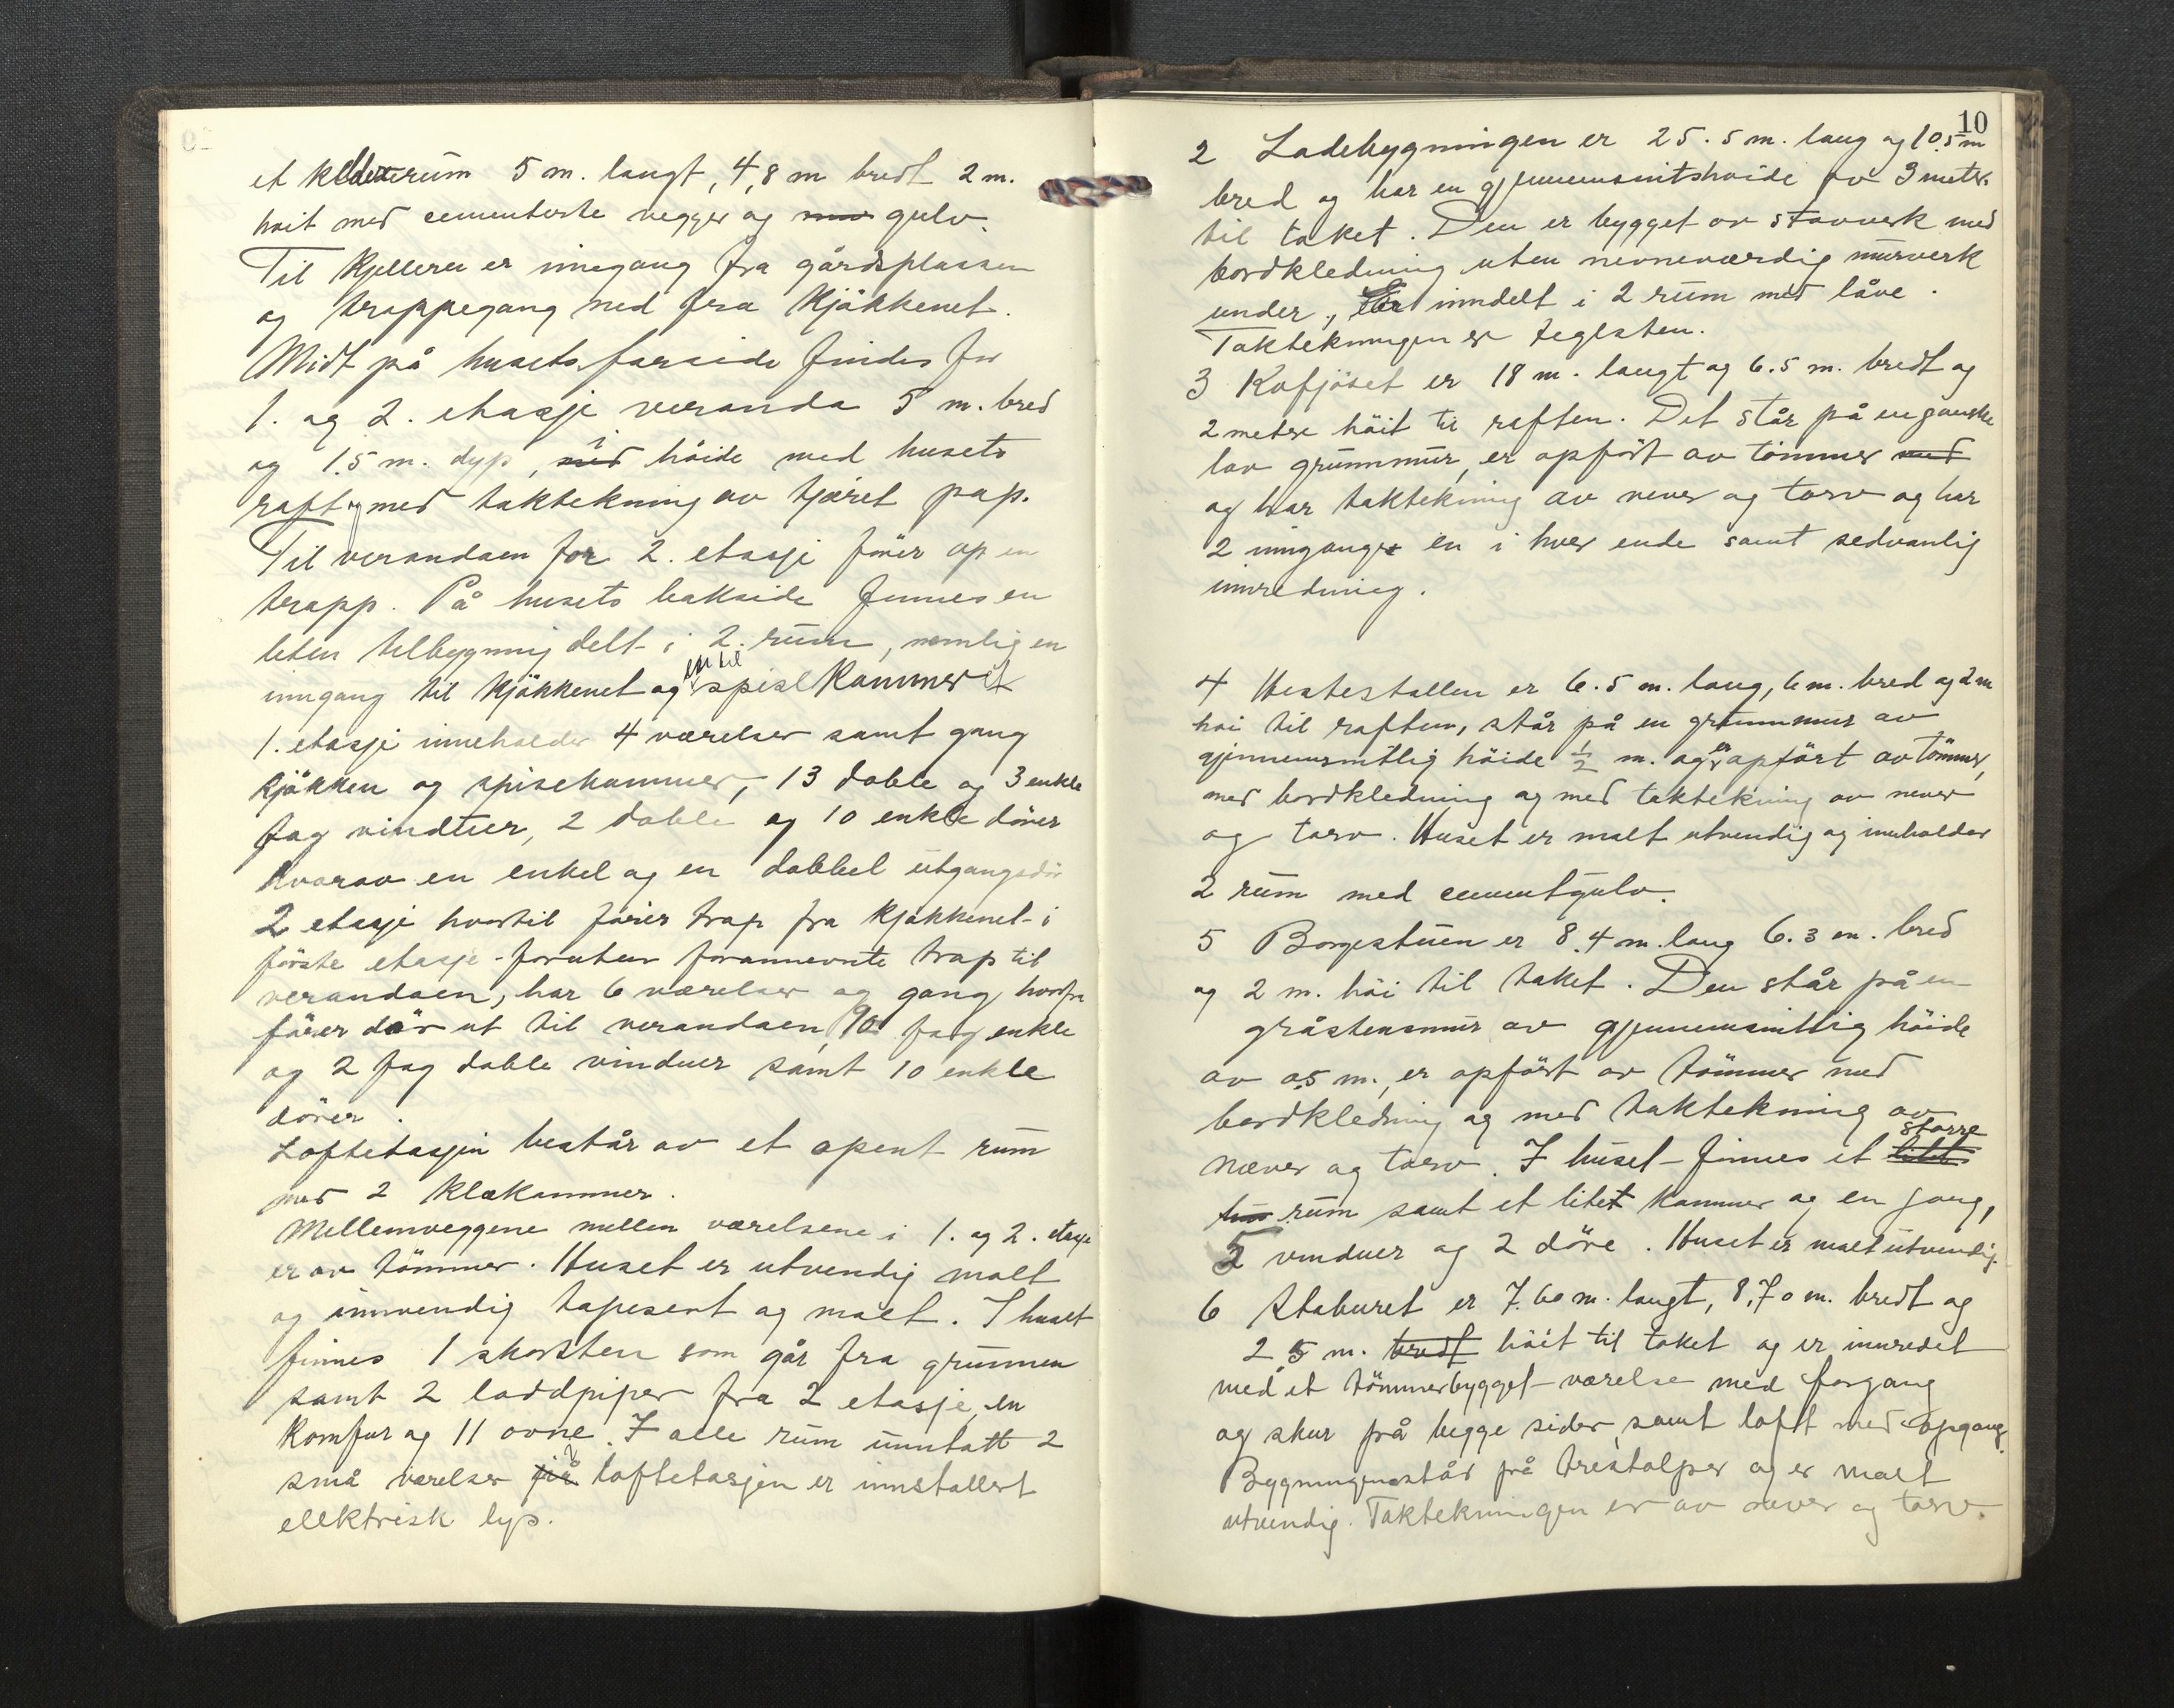 et kellerrum 5 m. langt, 4,8 m bredt 2 m.
høit med cementerte vegger og gulv.
Til kjelleren er inngang fra gårdsplassen
og trappegang ned fra kjökkenet.
Midt på husets farside findes for
1. og 2. etasje veranda 5 m. bred
og 1.5 m. dyp, i höide med husets
raft og med taktekning av tjæret pap.
Til verandaen for 2. etasje förer op en
trapp. På husets bakside finnes en
liten tilbygning delt i 2. rum, nemlig en
inngang til kjökkenet og en til spiskammeret
1. etasje inneholder 4 værelser samt gang
kjökken og spisekammer, 13 doble og 3 enkle
fag vinduer, 2 doble og 10 enkle dörer
hvorav en enkel og en dobbel utgangsdör
2 etasje hvortil förer trap fra kjökkenet i
förste etasje - foruten forannevnte trap til
verandaen, har 6 værelser og gang hvorfra
förer dör ut til verandaen, 90 fag enkle
og 2 fag doble vinduer samt 10 enkle
dörer.
Loftetasjen består av et opent rum
med 2 klækammer.
Mellemveggene mellem værelsene i 1. og 2. etasje
er av tömmer. Huset er utvendig malt
og innvendig tapesert og malt. I huset
finnes 1 skorsten som går fra grunnen
samt 2 laddpiper fra 2 etasje, en
komfur og 11 ovne. I alle rum unntatt 2
små værelser i loftetasjen er innstallert
ellktrisk lys.
10
2 Ladebygningen er 25.5 m. lang og 10.5 m
bred og har en gjennemsnitshøide av 3 meter
til taket. Den er bygget av stavverk med
bordkledning uten nevneværdig murverk
under, Er inndelt i 2 rum med låve.
Taktekningen er teglsten.
3 Kufjöset er 18 m. langt og 6.5 m. bredt og
2 metre höit til raften. Det står på en ganske
lav grunnmur, er opfört av tömmer
og har taktekning av never og torv og har
2 innganger en i hver ende samt sedvanlig
innredning.
4 Hestestallen er 6.5 m. lang, 6 m. bred og 2 m
høi til raften, står på en grunnmur av
gjennemsnitlig höide ½ m. og er opfört av tömmer,
med bordkledning og med taktekning av never
og torv. Huset er malt utvendig og inneholder
2 rum med cementgulv.
5 Borgestuen er 8.4 m. lang 6.3 m. bred
og 2 m. höi til taket. Den står på en
gråstensmur av gjennemsnittlig höide
av 0.5 m., er opfört av tömmer med
bordkledning og med taktekning av
næver og torv. I huset finnes et större
rum samt et litet kammer og en gang,
5 vinduer og 2 döre. Huset er malt utvendig.
6 Staburet er 7.60 m. langt, 8,70 m. bredt og
2,5 m. höit til taket og er innredet
med et tömmerbygget værelse med forgang
og skur på begge sider, samt loft med opgang.
Bygningen står på trestolper og er malt
utvendig. Taktekningen er av never og torv.